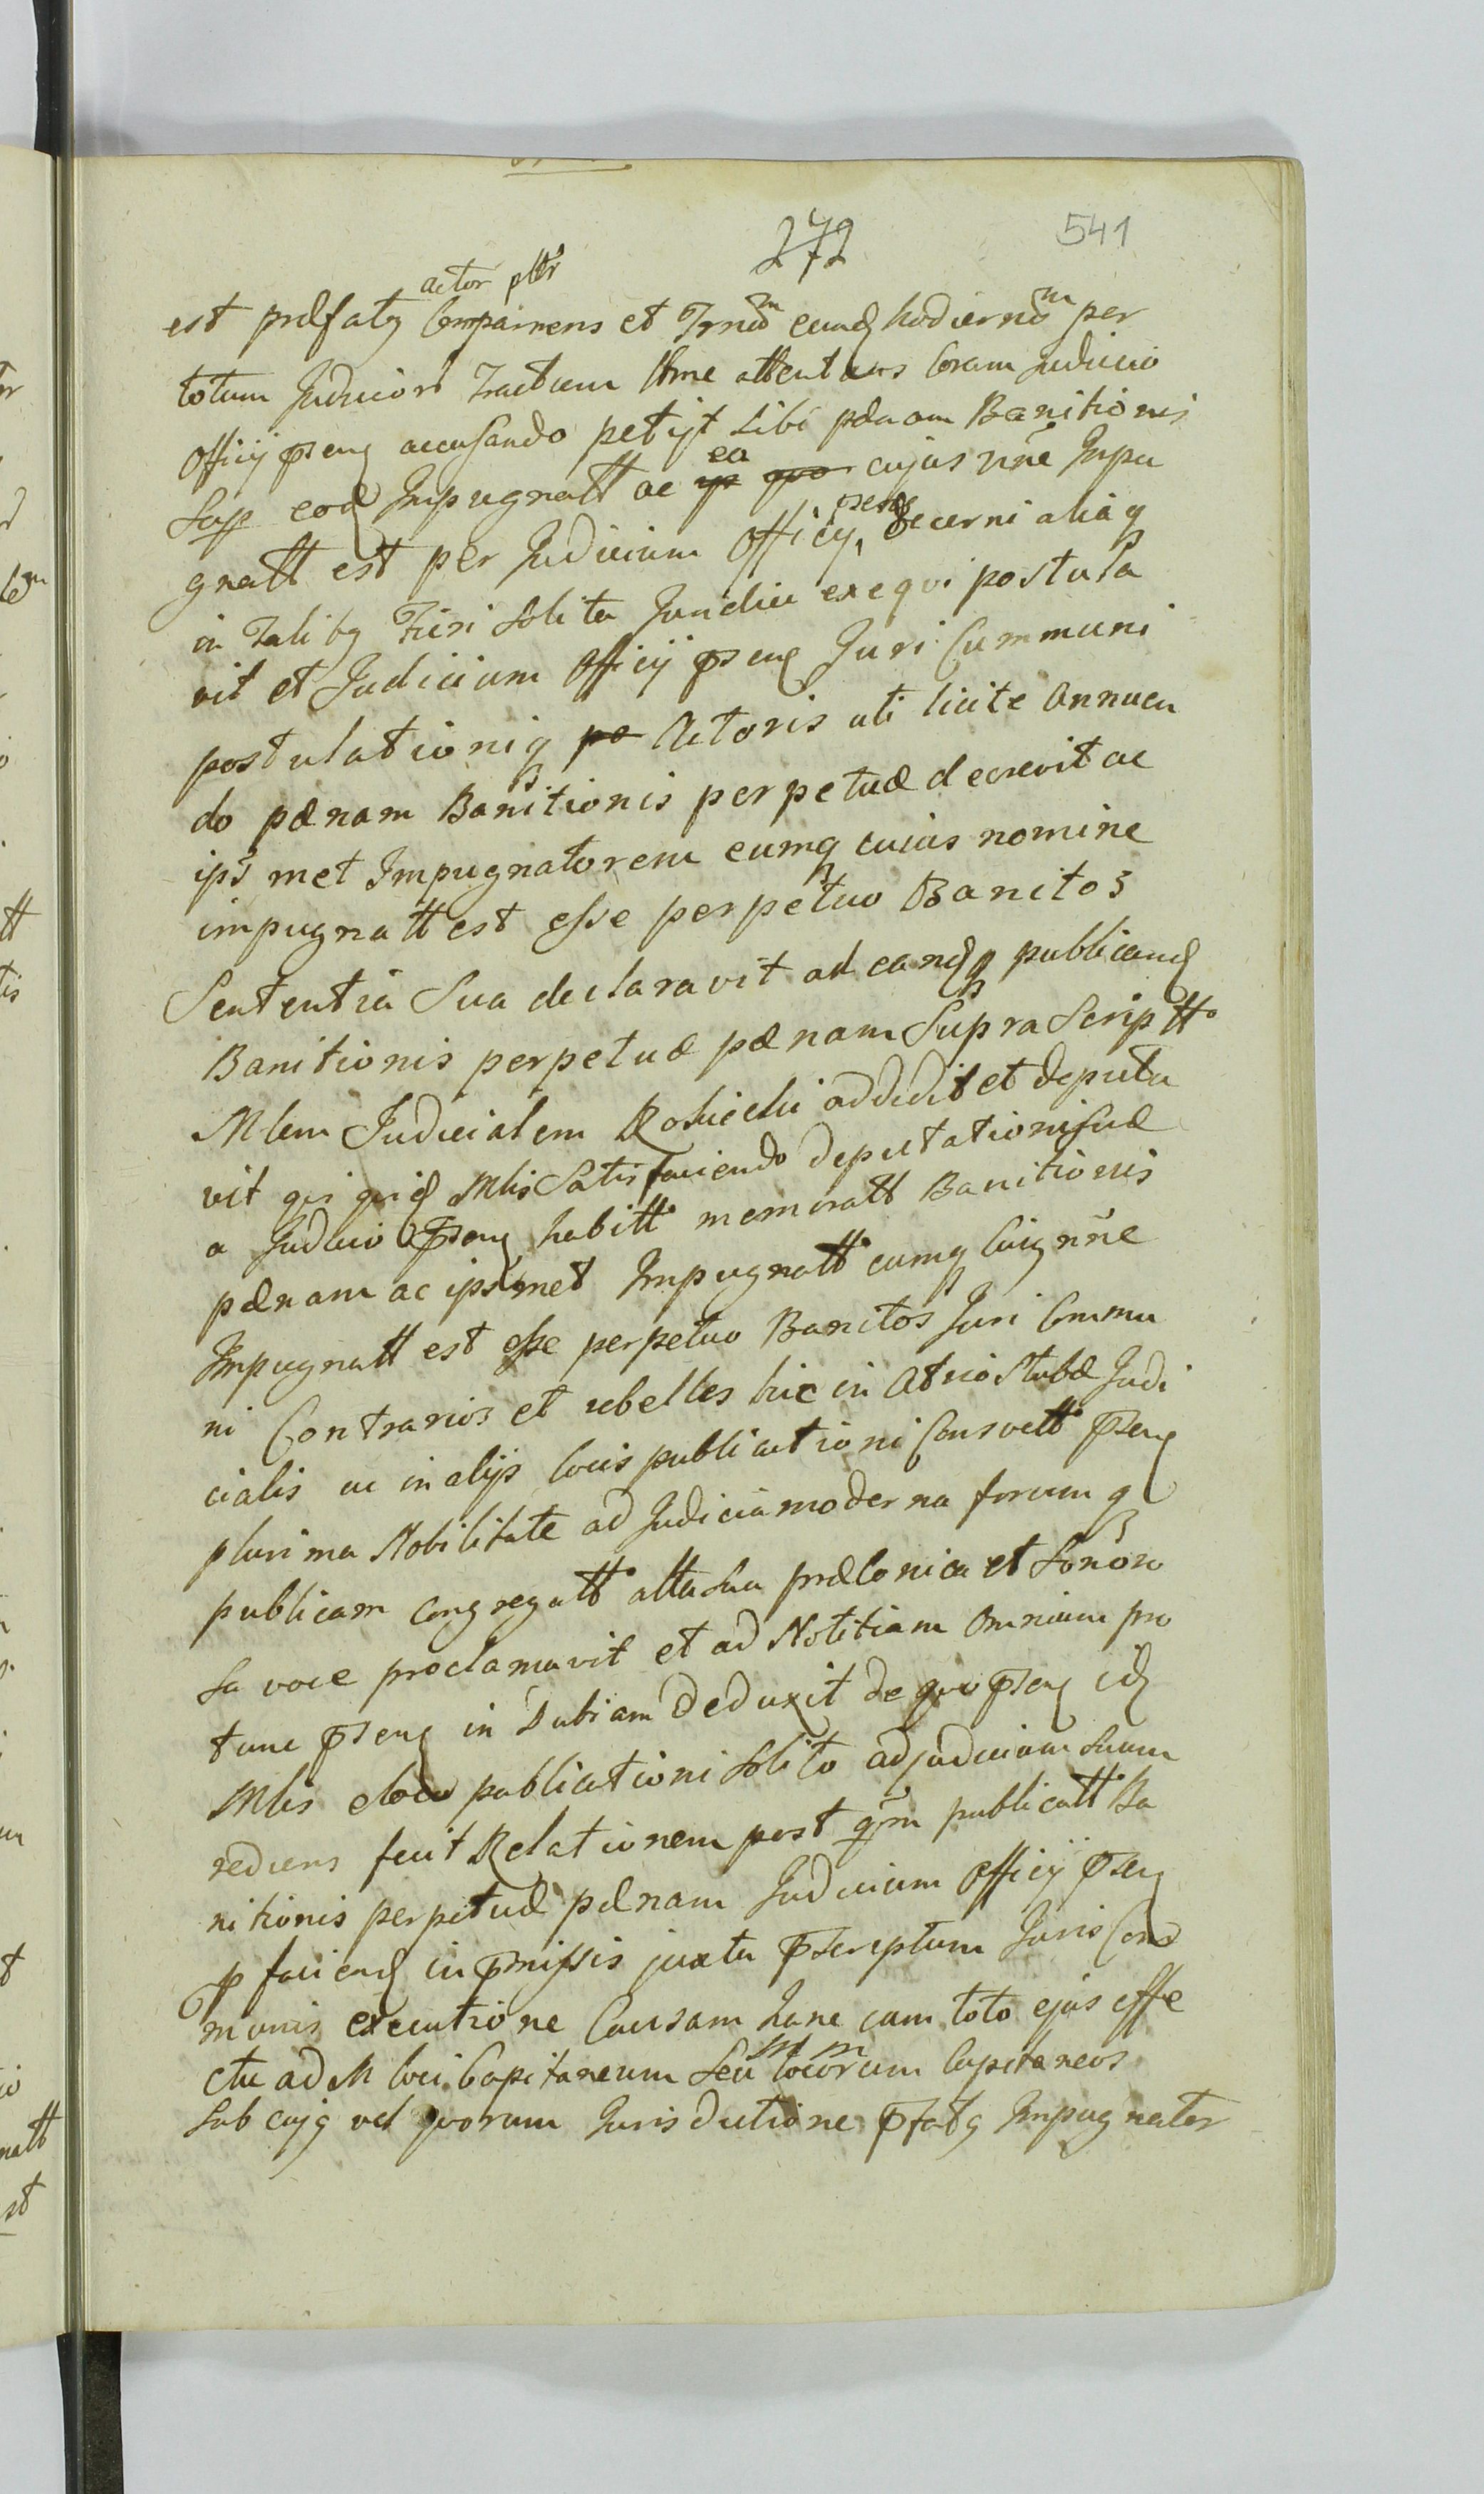 272
541
actor pttr
est præfatq Comparnens et Trnum eundq hodiernum per
totum Judicior Tractum Ame attentans Coram Judicio
Officij pseng accusando petijt Sibi pænam Banitionis
ea
Sup eod Impugnatt ac cujus nne Impu
psens
gnatt est per Judicium Officij decerni aliaq
in Talibq Fieri Solita Juridice exeqvi postula
vit et Judicium Officij pseng Juri Cummuni
postulationiq Actoris uti licite Annuen
do pænam Banitionis perpetuæ decrevit ac
ips met Impugnatorem eumq cuius nomine
impugnatt est esse perpetuo Banitos
Sententia Sua declaravit ad eandq publicand
Banitionis perpetuæ pænam Supra Scriptto
Mlem Judicialem Rohiclii addidit et deputa
vit qvi qvid Mlis Satisfaciendo deputationi suæ
a Judicio pseng habitt memoratt Banitionis
pænam ac ipsmet Impugnatt eumq Cuiq nne
Impugnatt est esse perpetuo Banitos Juri Commu
ni Contrarios et rebelles hic in Atrio Stubæ Judi
cialis ac in alijs locis publicationi Consvett pseng
plurima Nobilitate ad Judicia moderna forumq
publicam Congregatt alta sua præconica et Sonoro
sa voce proclamavit et ad Notitiam Omnium pro
tunc pseng in Dubiam deduxit de qvo pseng idq
Mlis eloco publicationi Solito ad judicium suum
rediens fecit Relationem post qvm publicatt Ba
nitionis perpetuæ pænam Judicium Officij pseng
p faciend in pmissis juxta pscriptum Juris Com
munis executione Causam hanc cum toto ejus effe
ctu ad M loci Capitaneum Seu M M locorum Capitaneos
Sub cujq vel qvorum Jurisdictione pfatq Impugnator